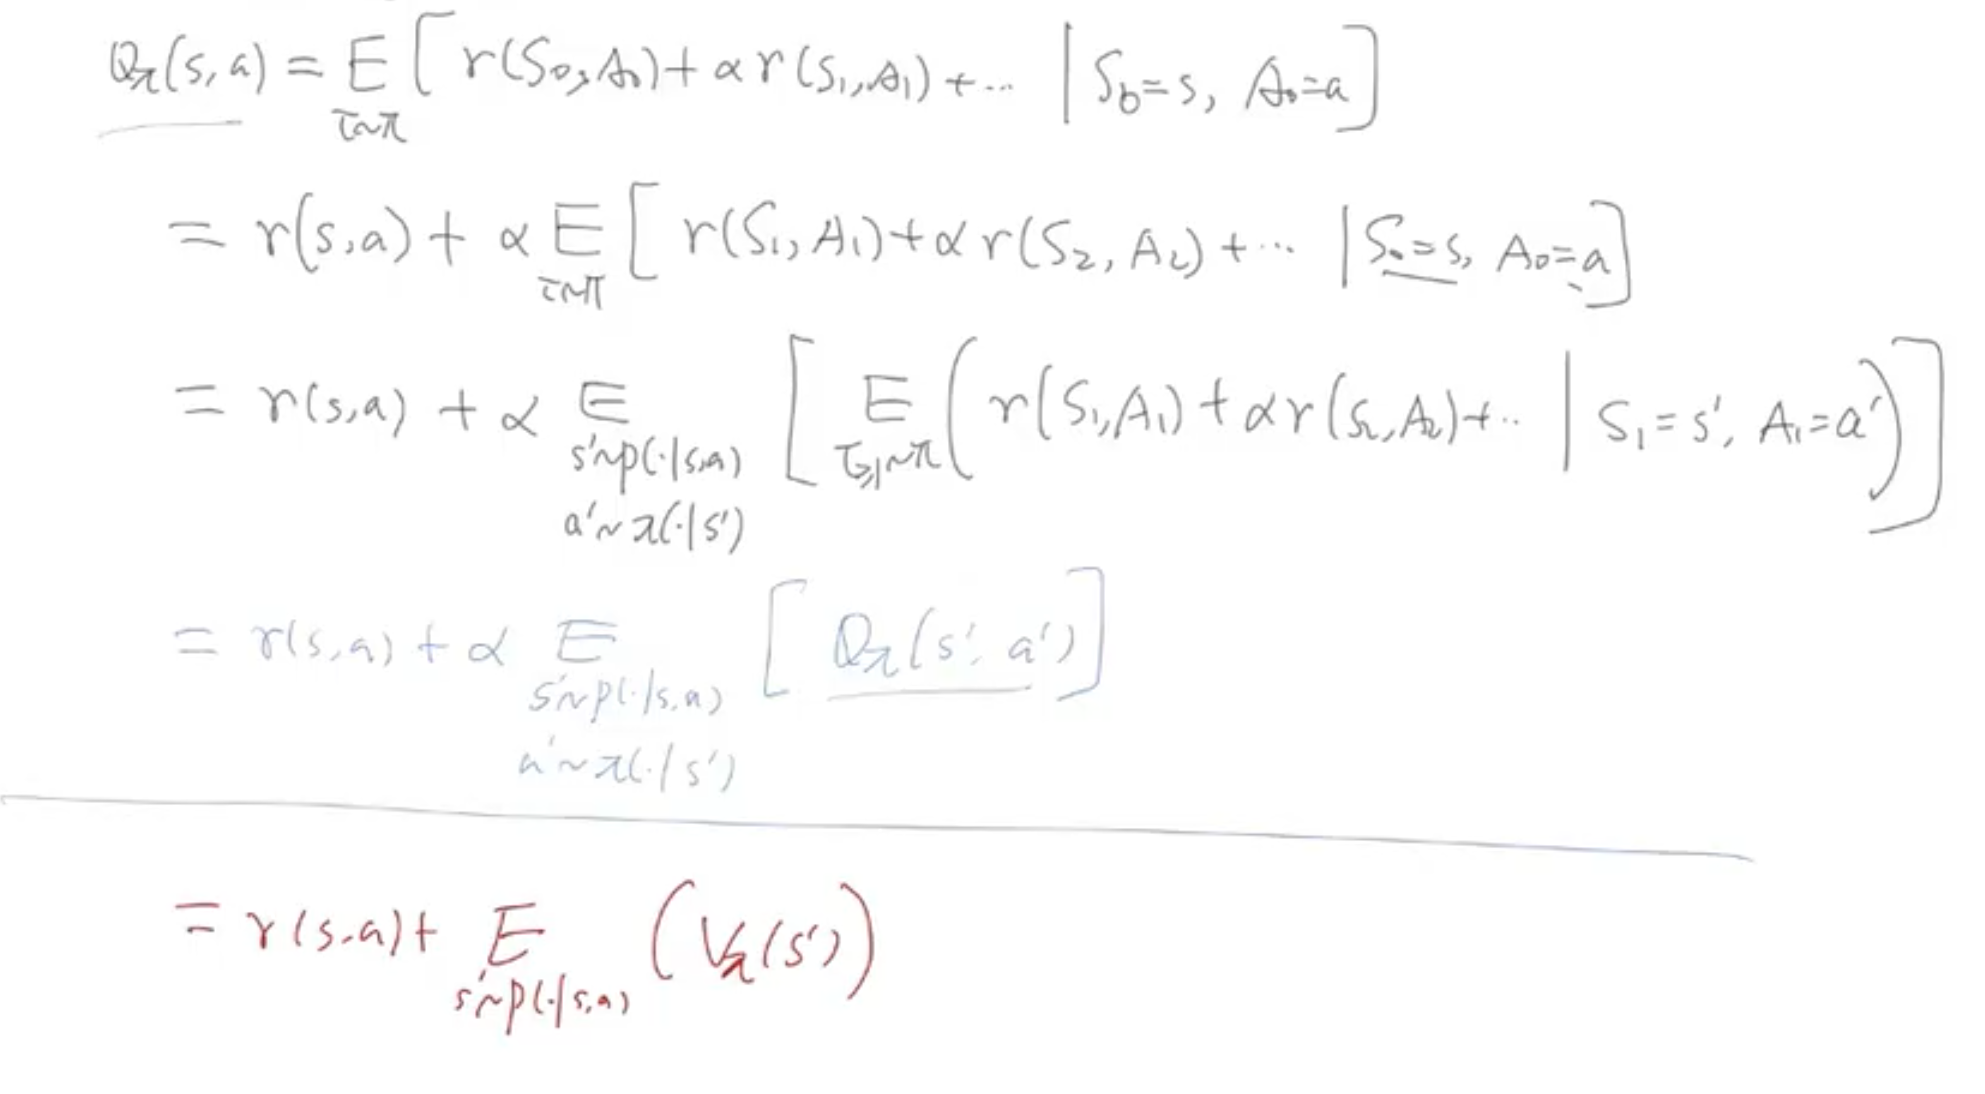 Qπ(s, a) = E τ~π [ r(S0, A0) + α r(S1, A1) + ... | S0=s, A0=a ]
= r(s,a) + α E τ~π [ r(S1, A1) + α r(S2, A2) + ... | S0=s, A0=a ]
= r(s,a) + α E s'~p(·|s,a) a'~π(·|s') [ E τ≥1~π ( r(S1,A1) + α r(S2,A2) + ... | S1=s', A1=a' ) ]
= r(s,a) + α E s'~p(·|s,a) a'~π(·|s') [ Qπ(s', a') ]
= r(s,a) + E s'~p(·|s,a) ( Vπ(s') )